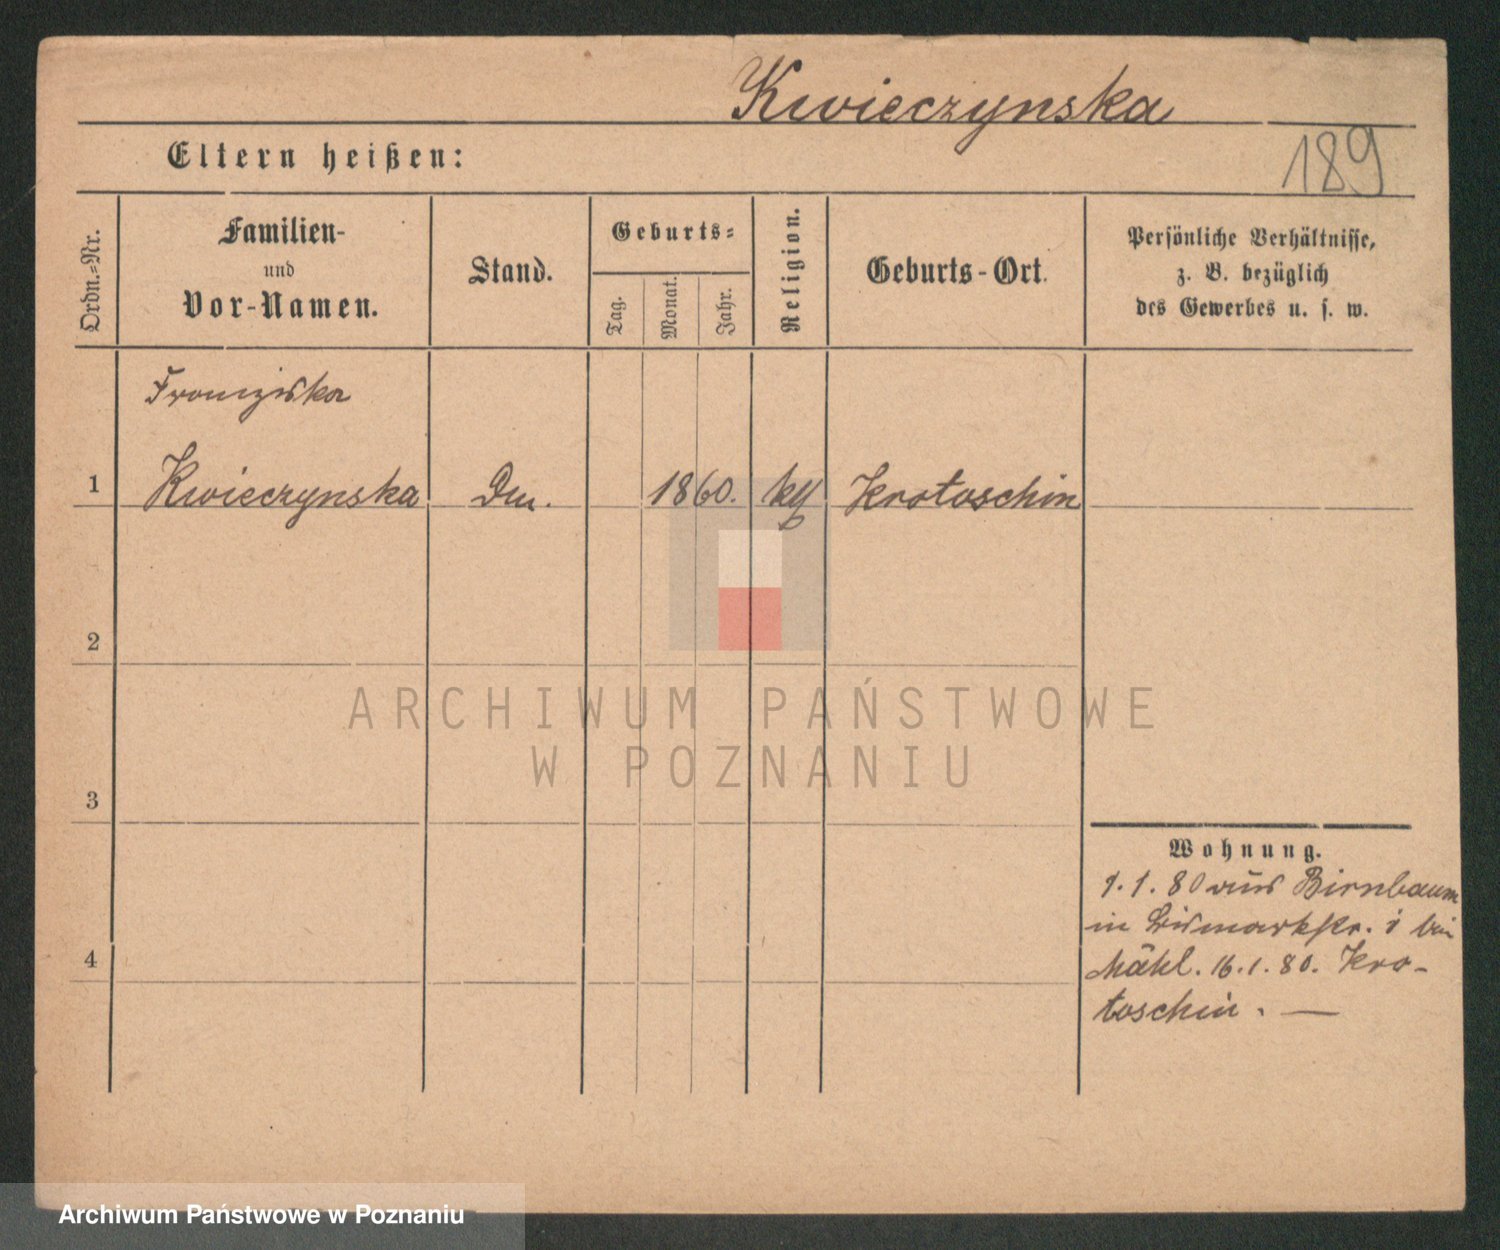 Kwieczynska
Eltern heißen:
189
Ordn.=Nr.
Familien-
und
Vor-Namen.
Stand.
Geburts=
Tag.
Monat.
Jahr.
Religion.
Geburts-Ort.
Persönliche Verhältnisse,
z. B. bezüglich
des Gewerbes u. s. w.
Franziska
1 Kwieczynska Dm. 1860. kth Krotoschin
2
3
4
Wohnung.
1.1.80 aus Birnbaum
in Bismarkstr. 1 bei
Mähl. 16.1.80. Kro-
toschin. —
ARCHIWUM PAŃSTWOWE
W POZNANIU
Archiwum Państwowe w Poznaniu